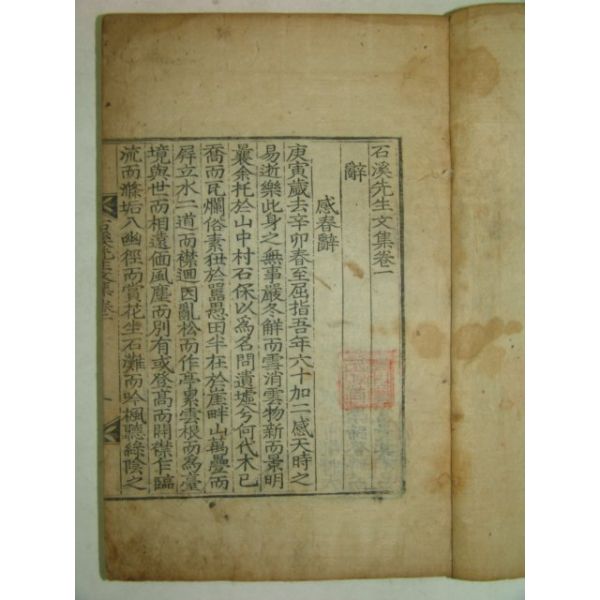 石溪先生文集卷一
辭
感春辭
庚寅歲去辛卯春至屈指吾年六十加二感天時之
易逝樂此身之無事嚴冬解而雲消雲物新而景明
曩余托於山中村石保以爲名問遺墟兮何代木已
喬而瓦爛俗素狂於嚚愚田半在於崖畔山萬疊而
屛立水二道而襟迴因亂松而作亭累雲根而爲臺
境與世而相遠偭風塵而別有或登高而開襟乍臨
流而滌垢入幽徑而賞花坐石灘而吟楓聽綠陰之
石溪先生文集 卷一